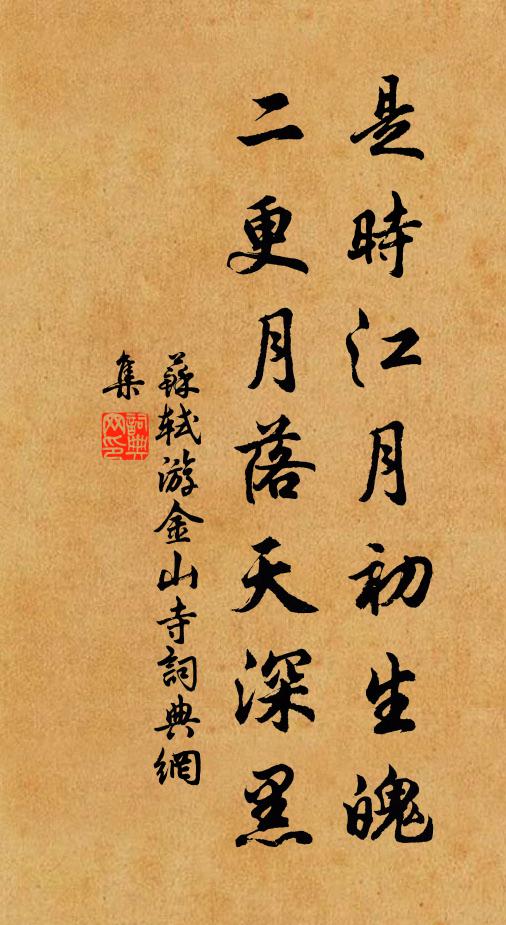 是時江月初生魄
二更月落天深黑
蘇軾游金山寺詞典網
集
詞典
网印